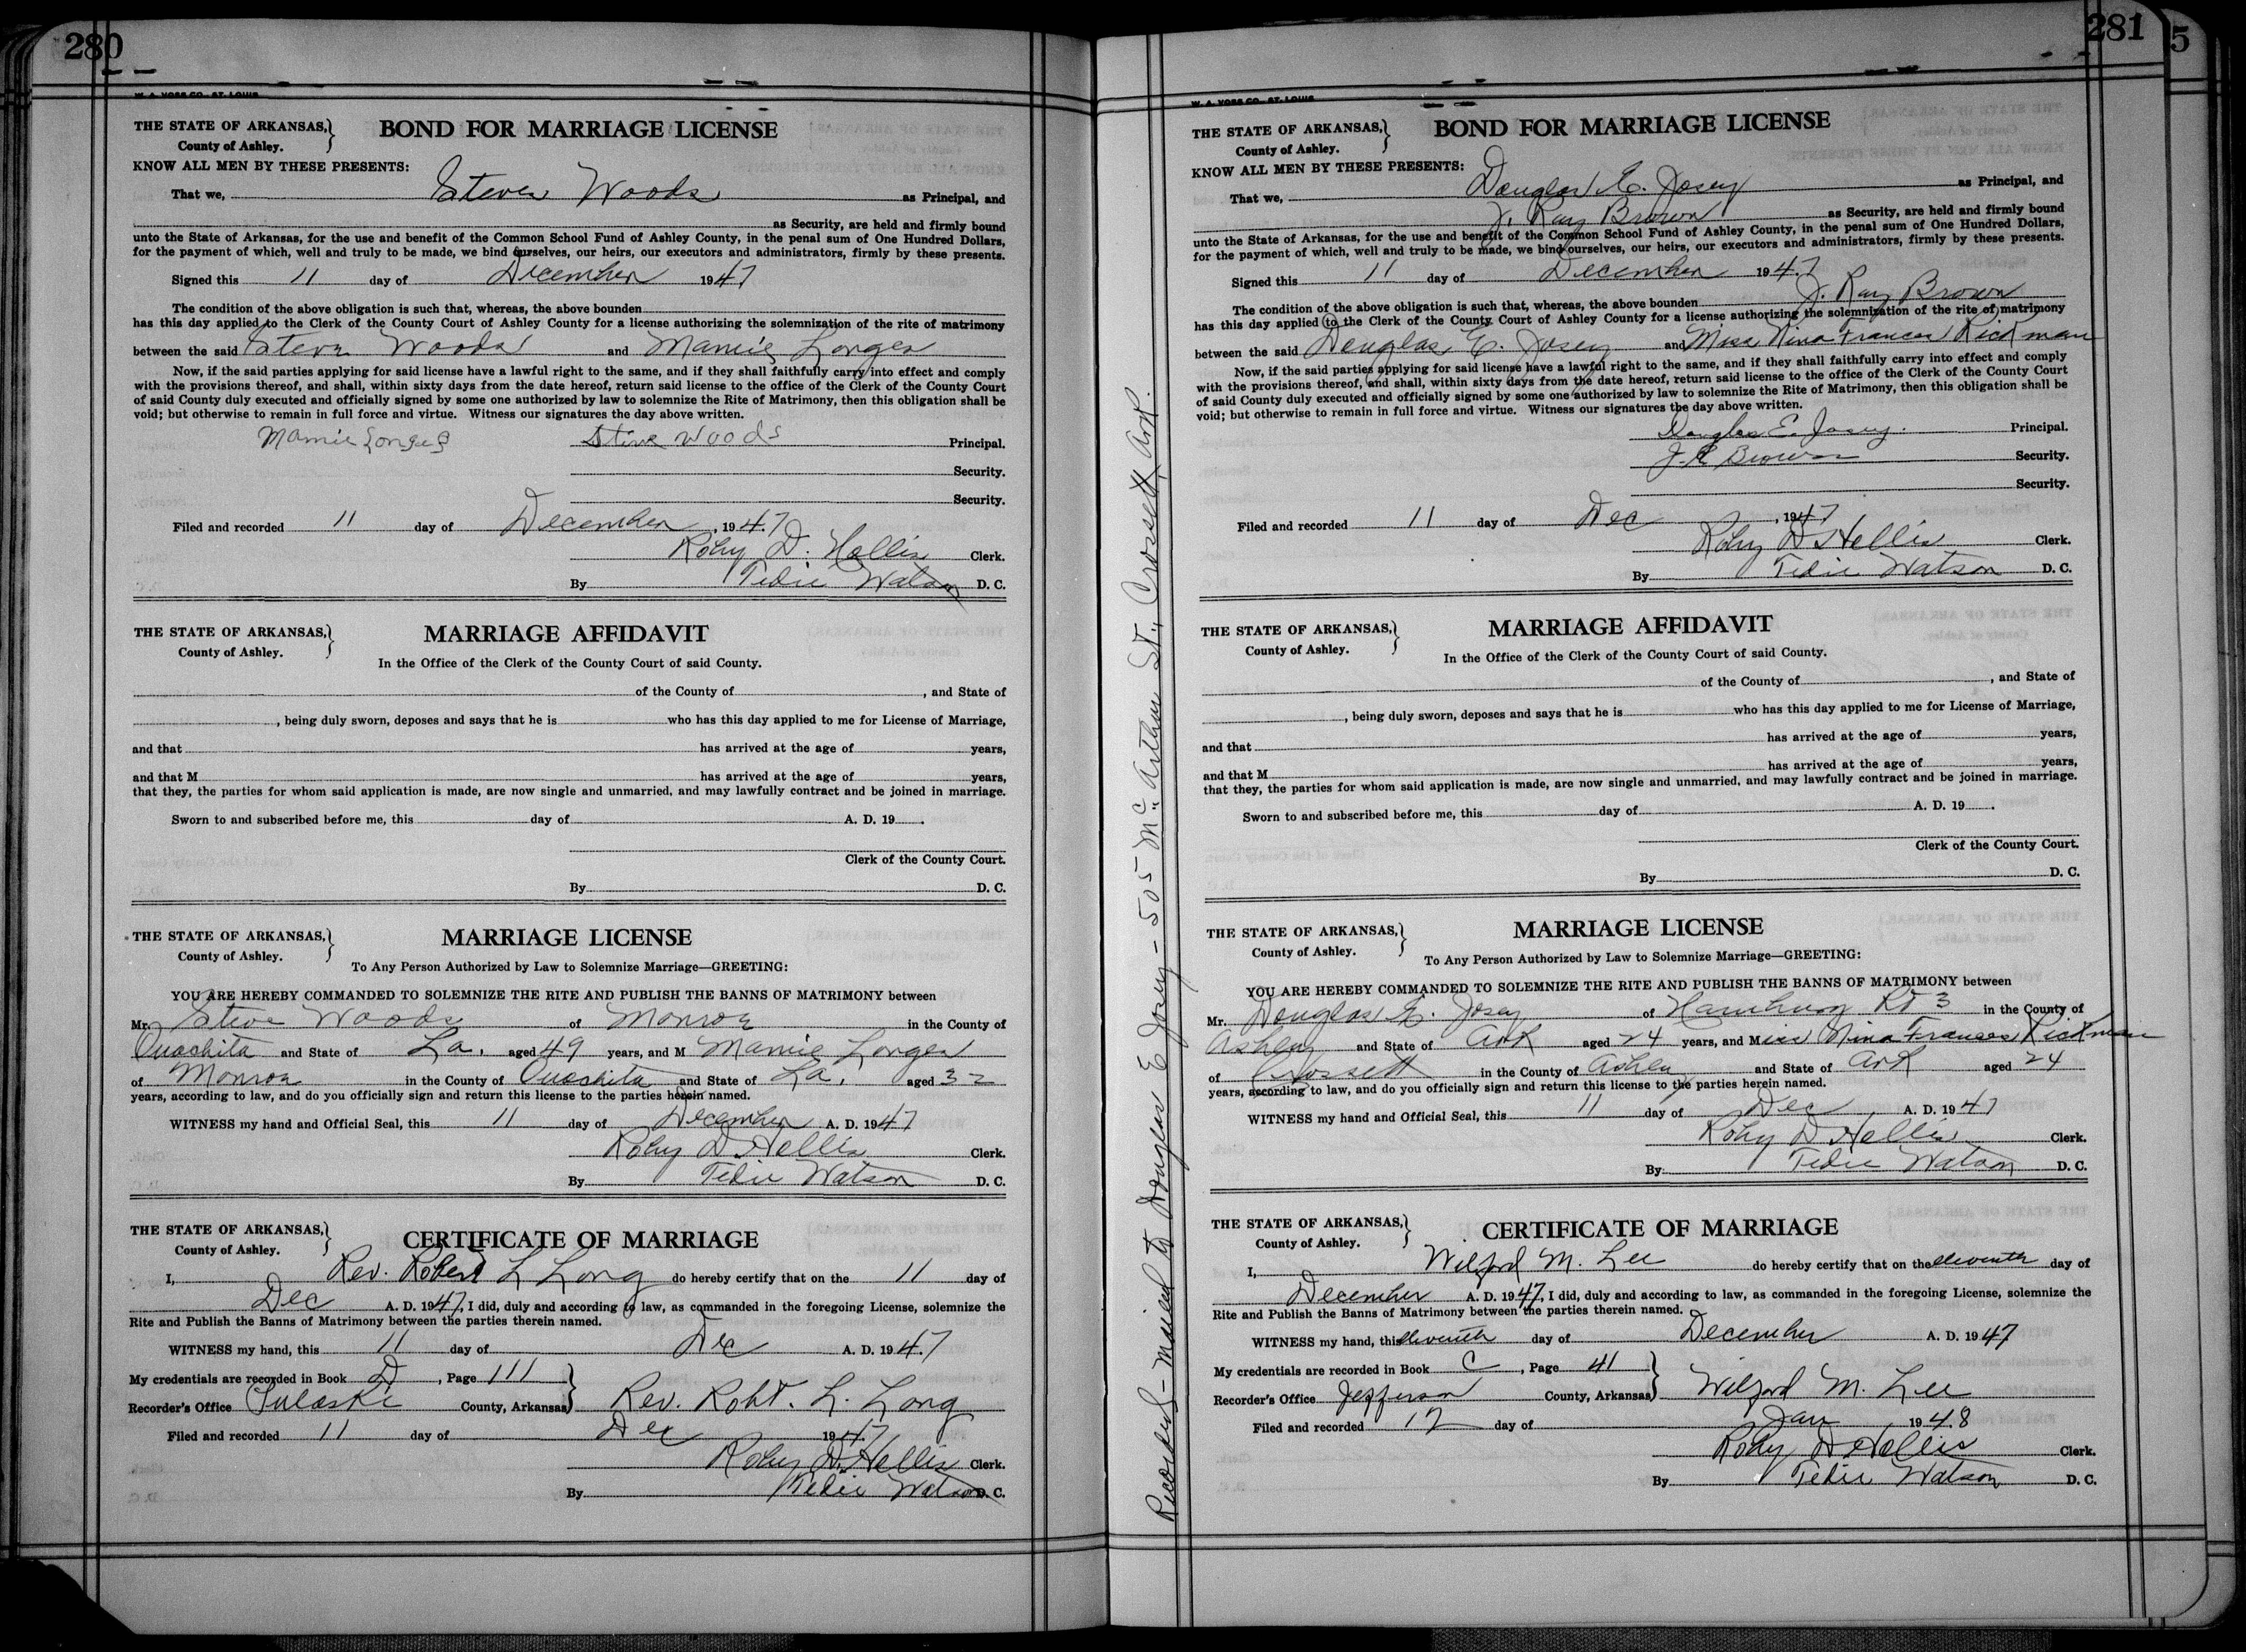 280
W. A. VOSS CO., ST. LOUIS
THE STATE OF ARKANSAS,} BOND FOR MARRIAGE LICENSE
County of Ashley.
KNOW ALL MEN BY THESE PRESENTS:
That we, Steve Woods as Principal, and
as Security, are held and firmly bound
unto the State of Arkansas, for the use and benefit of the Common School Fund of Ashley County, in the penal sum of One Hundred Dollars,
for the payment of which, well and truly to be made, we bind ourselves, our heirs, our executors and administrators, firmly by these presents.
Signed this 11 day of December 1947
The condition of the above obligation is such that, whereas, the above bounden
has this day applied to the Clerk of the County Court of Ashley County for a license authorizing the solemnization of the rite of matrimony
between the said Steve Woods and Mamie Longes
Now, if the said parties applying for said license have a lawful right to the same, and if they shall faithfully carry into effect and comply
with the provisions thereof, and shall, within sixty days from the date hereof, return said license to the office of the Clerk of the County Court
of said County duly executed and officially signed by some one authorized by law to solemnize the Rite of Matrimony, then this obligation shall be
void; but otherwise to remain in full force and virtue. Witness our signatures the day above written.
Mamie Longes Stive Woods Principal.
Security.
Security.
Filed and recorded 11 day of December, 1947
Roby D. Hollis Clerk.
By Tedie Watson D. C.
THE STATE OF ARKANSAS,} MARRIAGE AFFIDAVIT
County of Ashley.
In the Office of the Clerk of the County Court of said County.
of the County of , and State of
, being duly sworn, deposes and says that he is who has this day applied to me for License of Marriage,
and that has arrived at the age of years,
and that M has arrived at the age of years,
that they, the parties for whom said application is made, are now single and unmarried, and may lawfully contract and be joined in marriage.
Sworn to and subscribed before me, this day of A. D. 19 .
Clerk of the County Court.
By D. C.
THE STATE OF ARKANSAS,} MARRIAGE LICENSE
County of Ashley.
To Any Person Authorized by Law to Solemnize Marriage—GREETING:
YOU ARE HEREBY COMMANDED TO SOLEMNIZE THE RITE AND PUBLISH THE BANNS OF MATRIMONY between
Mr. Steve Woods of Monroe in the County of
Ouachita and State of La. aged 49 years, and M Mamie Longes
of Monroe in the County of Ouachita and State of La. aged 32
years, according to law, and do you officially sign and return this license to the parties herein named.
WITNESS my hand and Official Seal, this 11 day of December A. D. 1947
Roby D Hollis Clerk.
By Tedie Watson D. C.
THE STATE OF ARKANSAS,} CERTIFICATE OF MARRIAGE
County of Ashley.
I, Rev. Robert L Long do hereby certify that on the 11 day of
Dec A. D. 1947, I did, duly and according to law, as commanded in the foregoing License, solemnize the
Rite and Publish the Banns of Matrimony between the parties therein named.
WITNESS my hand, this 11 day of Dec A. D. 1947
My credentials are recorded in Book D, Page 111
Recorder's Office Pulaski County, Arkansas} Rev. Robt. L. Long
Filed and recorded 11 day of Dec 1947
Roby D. Hollis Clerk.
By Tedie Watson D. C.
Recorded - mailed to Douglas E Josey - 505 McArthur St., Crossett, Ark.
281
5
W. A. VOSS CO., ST. LOUIS
THE STATE OF ARKANSAS,} BOND FOR MARRIAGE LICENSE
County of Ashley.
KNOW ALL MEN BY THESE PRESENTS:
That we, Douglas E. Josey as Principal, and
J. Ray Brown as Security, are held and firmly bound
unto the State of Arkansas, for the use and benefit of the Common School Fund of Ashley County, in the penal sum of One Hundred Dollars,
for the payment of which, well and truly to be made, we bind ourselves, our heirs, our executors and administrators, firmly by these presents.
Signed this 11 day of December 1947
The condition of the above obligation is such that, whereas, the above bounden J. Ray Brown
has this day applied to the Clerk of the County Court of Ashley County for a license authorizing the solemnization of the rite of matrimony
between the said Douglas E. Josey and Miss Nina Frances Rickman
Now, if the said parties applying for said license have a lawful right to the same, and if they shall faithfully carry into effect and comply
with the provisions thereof, and shall, within sixty days from the date hereof, return said license to the office of the Clerk of the County Court
of said County duly executed and officially signed by some one authorized by law to solemnize the Rite of Matrimony, then this obligation shall be
void; but otherwise to remain in full force and virtue. Witness our signatures the day above written.
Douglas E. Josey. Principal.
J. R Brown Security.
Security.
Filed and recorded 11 day of Dec, 1947
Roby D Hollis Clerk.
By Tedie Watson D. C.
THE STATE OF ARKANSAS,} MARRIAGE AFFIDAVIT
County of Ashley.
In the Office of the Clerk of the County Court of said County.
of the County of , and State of
, being duly sworn, deposes and says that he is who has this day applied to me for License of Marriage,
and that has arrived at the age of years,
and that M has arrived at the age of years,
that they, the parties for whom said application is made, are now single and unmarried, and may lawfully contract and be joined in marriage.
Sworn to and subscribed before me, this day of A. D. 19 .
Clerk of the County Court.
By D. C.
THE STATE OF ARKANSAS,} MARRIAGE LICENSE
County of Ashley.
To Any Person Authorized by Law to Solemnize Marriage—GREETING:
YOU ARE HEREBY COMMANDED TO SOLEMNIZE THE RITE AND PUBLISH THE BANNS OF MATRIMONY between
Mr. Douglas E. Josey of Hamburg Rt 3 in the County of
Ashley and State of Ark aged 24 years, and Miss Nina Frances Rickman
of Crossett in the County of Ashley and State of Ark aged 24
years, according to law, and do you officially sign and return this license to the parties herein named.
WITNESS my hand and Official Seal, this 11 day of Dec A. D. 1947
Roby D Hollis Clerk.
By Tedie Watson D. C.
THE STATE OF ARKANSAS,} CERTIFICATE OF MARRIAGE
County of Ashley.
I, Wilford M. Lee do hereby certify that on the eleventh day of
December A. D. 1947, I did, duly and according to law, as commanded in the foregoing License, solemnize the
Rite and Publish the Banns of Matrimony between the parties therein named.
WITNESS my hand, this eleventh day of December A. D. 1947
My credentials are recorded in Book C, Page 41
Recorder's Office Jefferson County, Arkansas} Wilford M. Lee
Filed and recorded 17 day of Jan 1948
Roby D Hollis Clerk.
By Tedie Watson D. C.